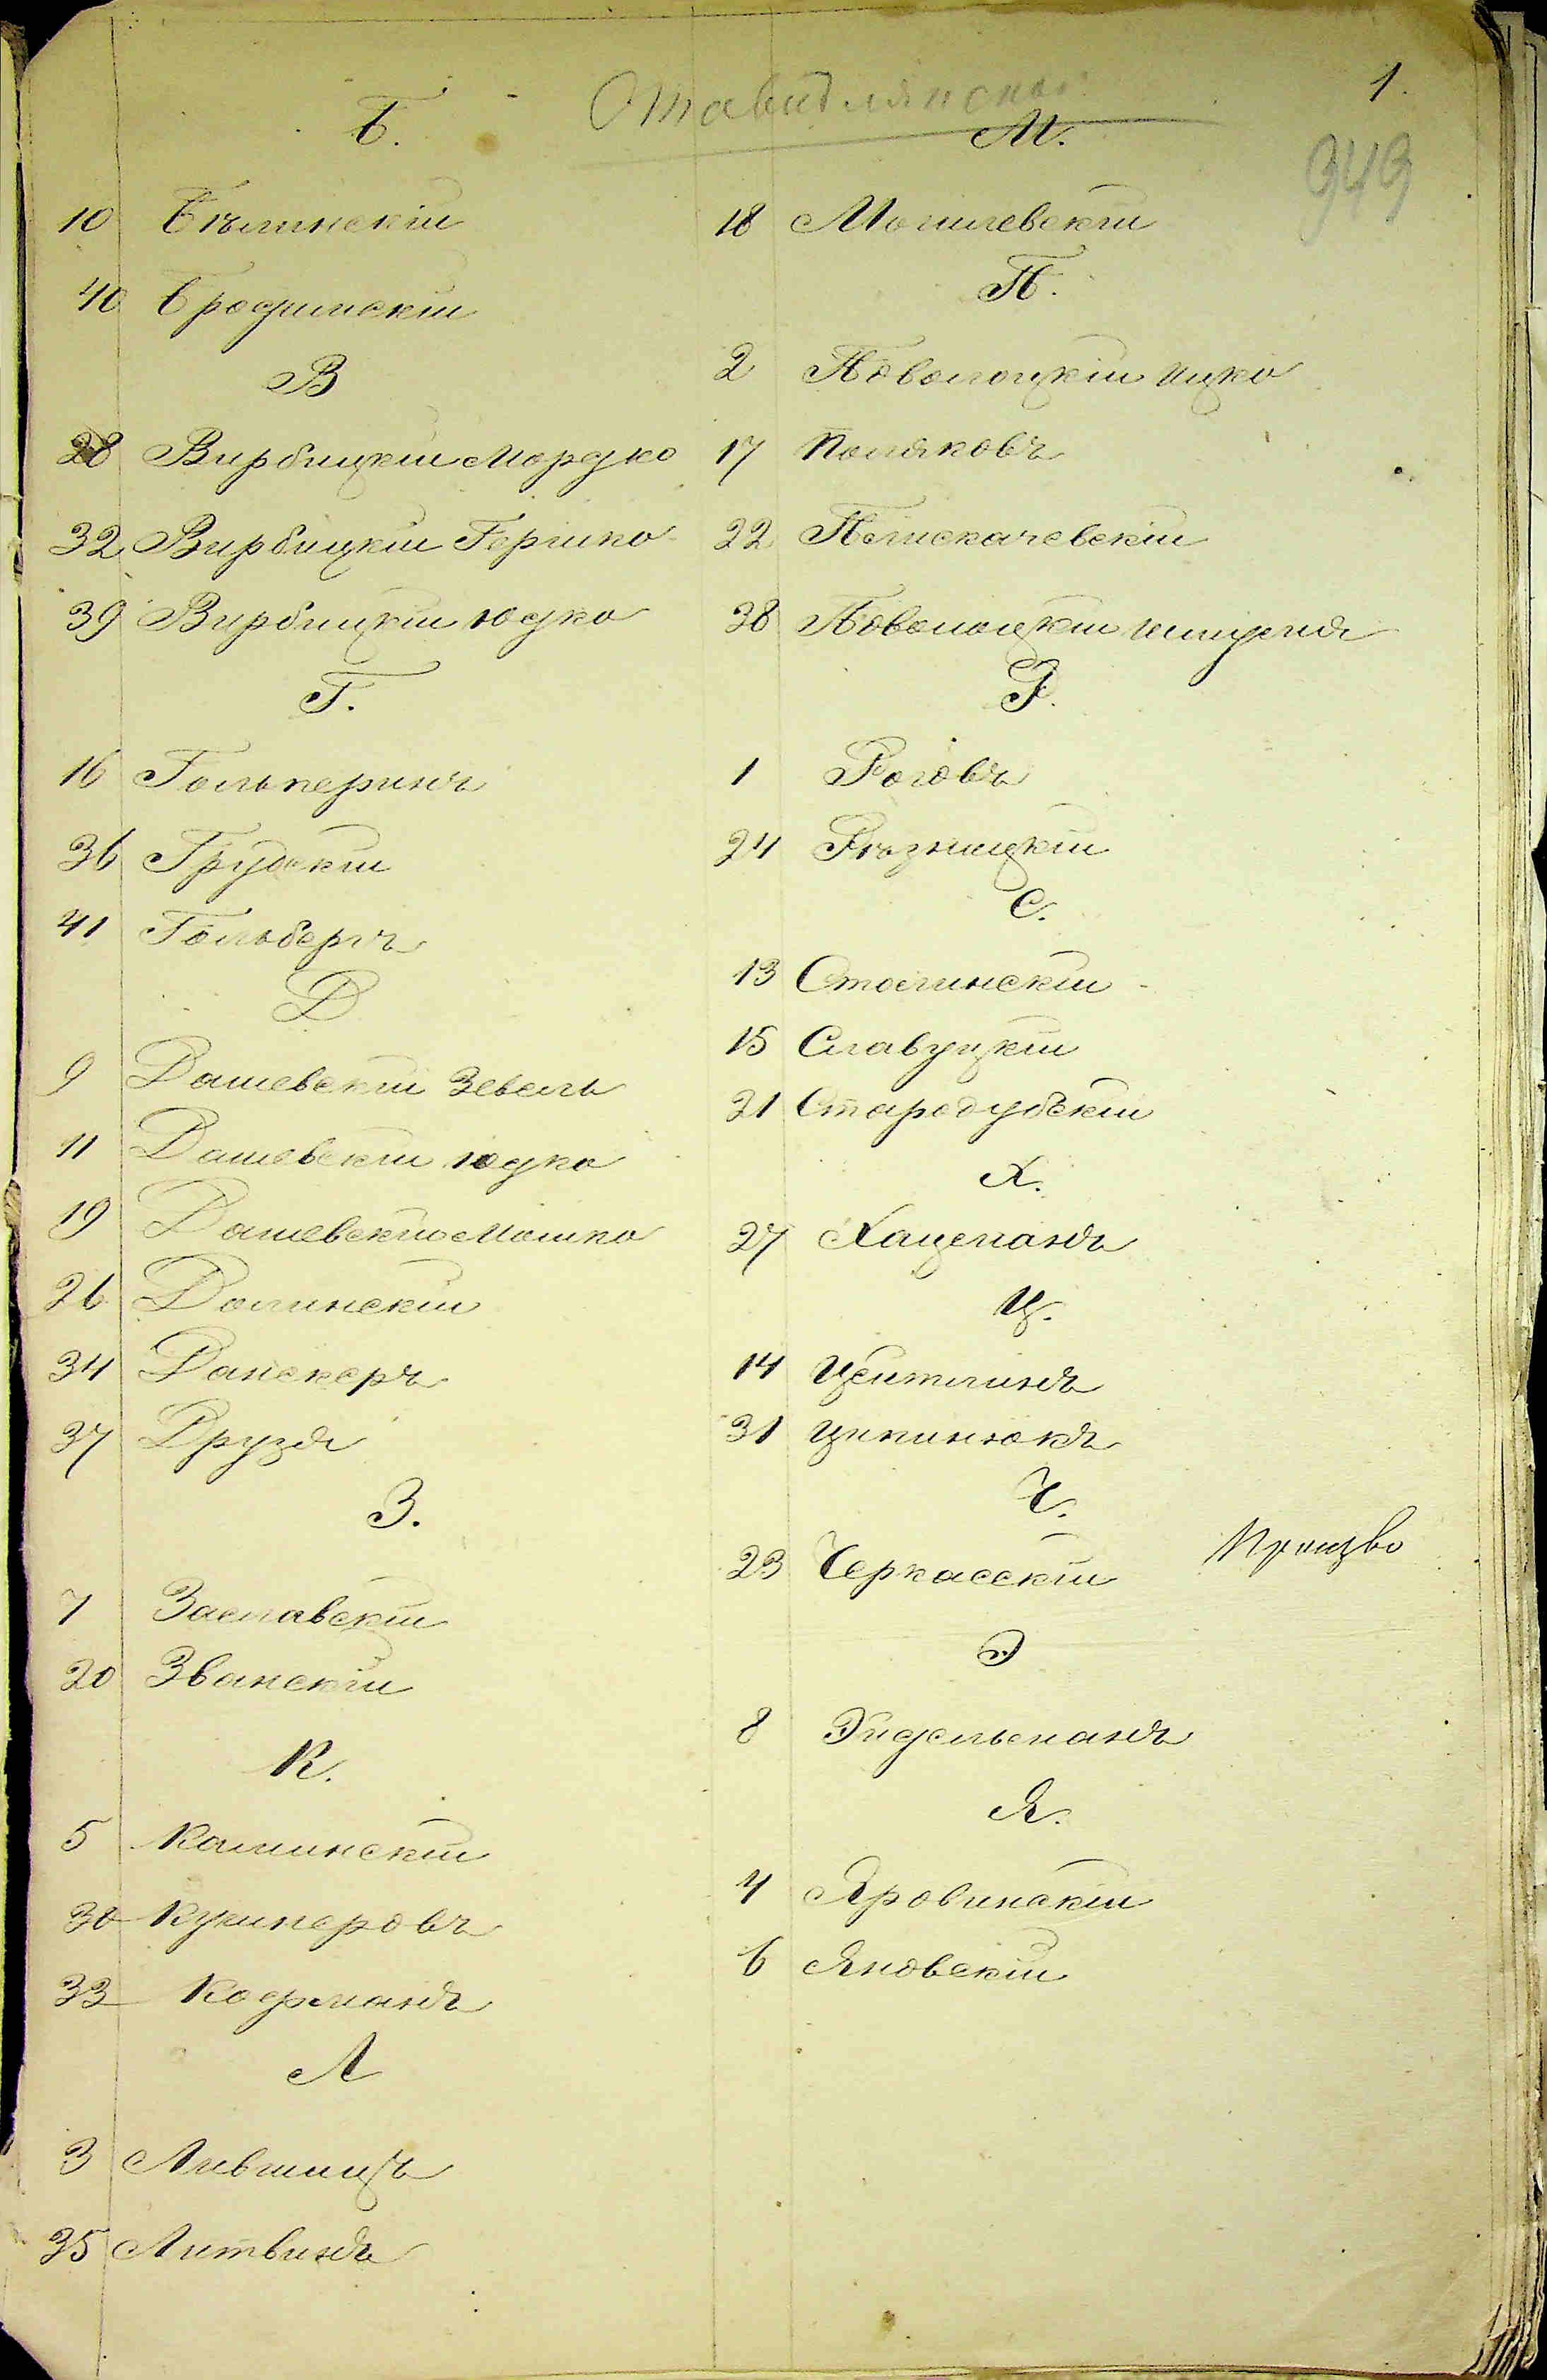 1.
949
Б.
10 Бѣлинскій
40 Бродинскій
В
28 Вирбицкій Мордко
32 Вирбицкій Гершко
39 Вирбицкій Юдко
Г.
16 Гольперинъ
36 Грудскій
41 Гольбергъ
Д
9 Дашевскій Зевель
11 Дашевскій Юдко
19 Дашевскій Мошко
26 Долинскій
34 Данскеръ
37 Друзя
З.
7 Заславскій
20 Званскій
К.
5 Калинскій
30 Кушперовъ
33 Кофманъ
Л
3 Лившицъ
35 Литвинъ
М.
18 Могилевскій
П.
2 Поволоцкій Ицко
17 Поляковъ
22 Плискачевскій
38 Поволоцкій
Р.
1 Роговъ
24 Рѣзницкій
С.
13 Столинскій
15 Славуцкій
21 Стародубскій
Х.
27 Хацеманъ
Ц.
14 Цейтлинъ
31 Ципинюкъ
Ч.
23 Черкасскій
Э
8 Эйдельманъ
Я.
4 Яровинскій
6 Яновскій